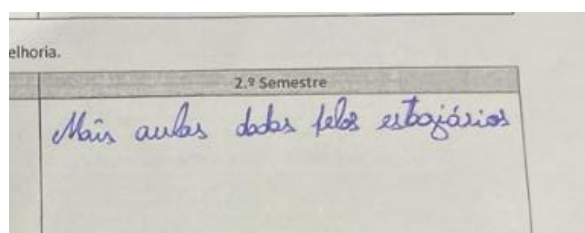 elhoria.
2.º Semestre
Mais aulas dadas pelos estagiários